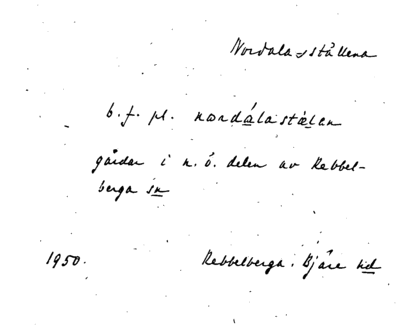 Nordalaställena
b. f. pl. nordálastælen
gårdar i n. ö. delen av Rebbel-
berga sn
1950. Rebbelberga. Bjäre hd